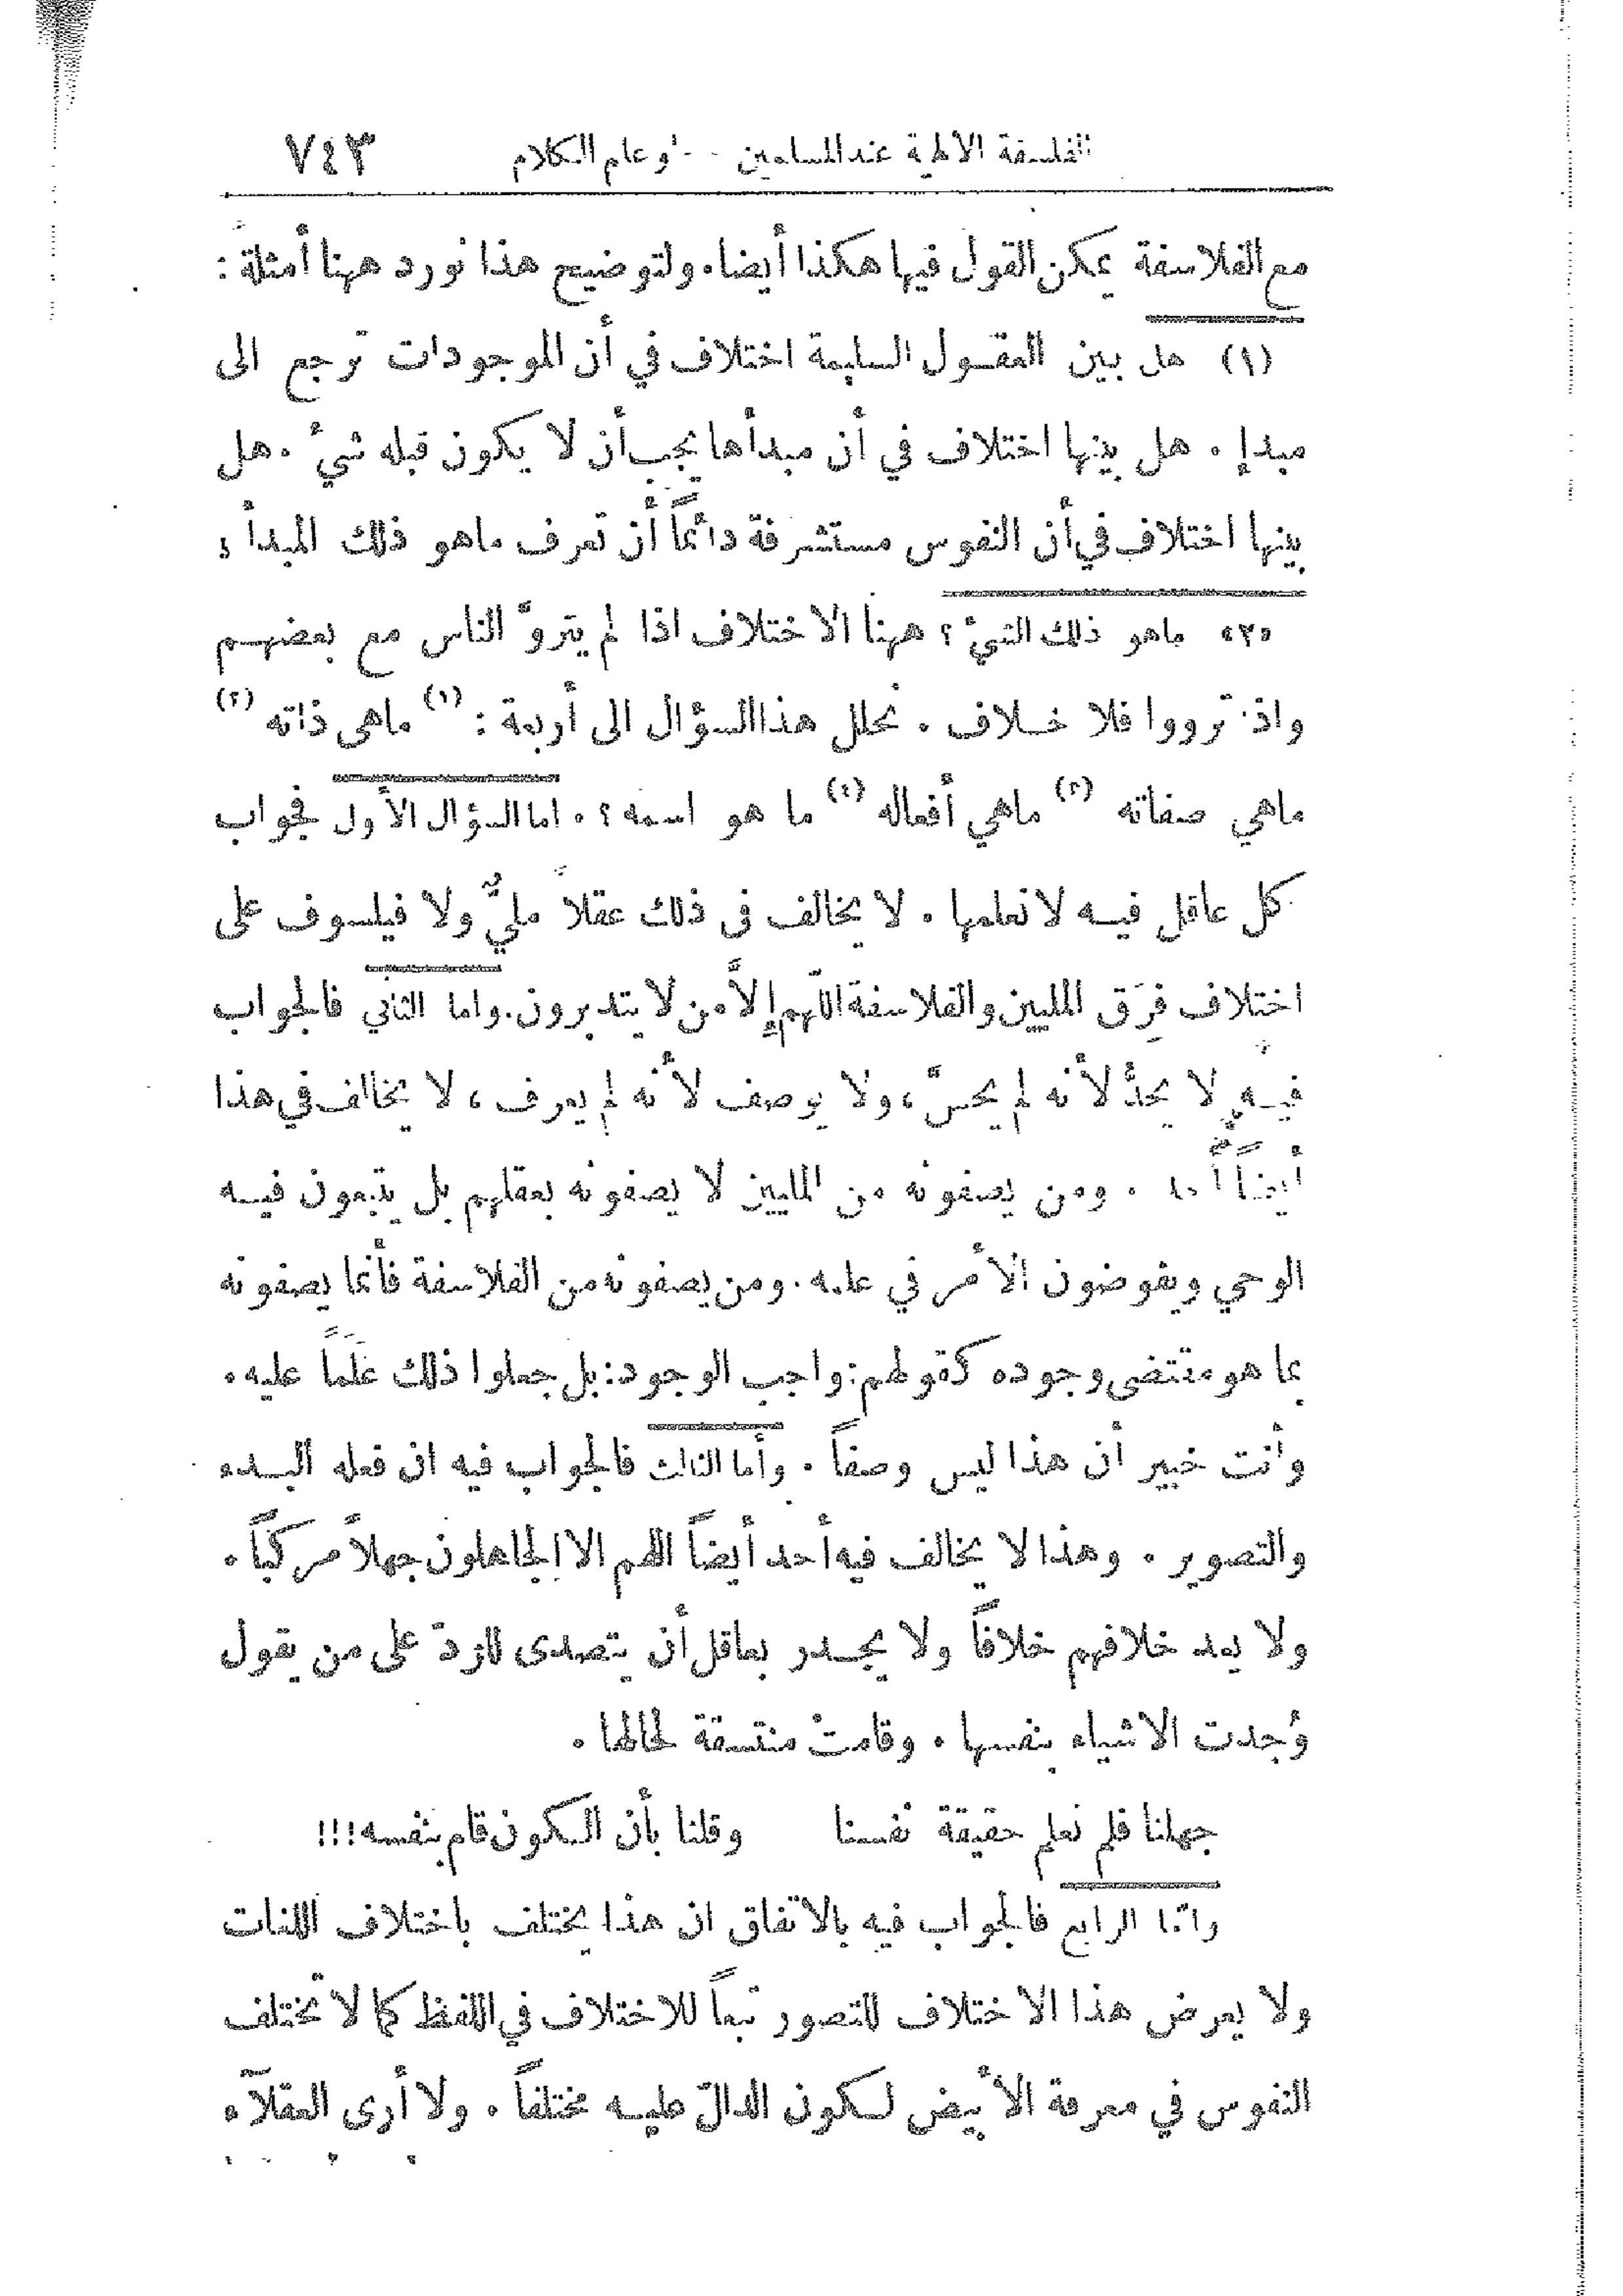 الفلسفة الالهية عند المسلمين -- او علم الكلام ٧٤٣
مع الفلاسفة يمكن القول فيها هكذا أيضا. ولتوضيح هذا نورد ههنا أمثلة :
(١) هل بين العقول السليمة اختلاف في أن الموجودات ترجع الى
مبدإ . هل بينها اختلاف في أن مبدأها يجب أن لا يكون قبله شيءٌ . هل
بينها اختلاف في أن النفوس مستشرفة دائماً أن تعرف ماهو ذلك المبدأ ؟
«٢» ماهو ذلك الشيءُ ؟ ههنا الاختلاف اذا لم يتروَّ الناس مع بعضهم
واذ تروّوا فلا خلاف . نحلل هذا السؤال الى أربعة : (١) ماهى ذاته (٢)
ماهي صفاته (٣) ماهي أفعاله (٤) ما هو اسمه ؟ . اما السؤال الأول فجواب
كل عاقل فيه لا نعلمها . لا يخالف فى ذلك عقلاً مليٌّ ولا فيلسوف على
اختلاف فِرَق المليين والفلاسفة اللّهم إلاَّ من لا يتدبرون. واما الثاني فالجواب
فيه لا يحدُّ لأنه لم يحسَّ ، ولا يوصف لأنه لم يعرف ، لا يخالف في هذا
أيضاً أحد . ومن يصفونه من المليين لا يصفونه بعقلهم بل يتبعون فيه
الوحي ويفوضون الأمر في علمه . ومن يصفونه من الفلاسفة فأنما يصفونه
بما هو مقتضى وجوده كقولهم: واجب الوجود: بل جعلوا ذلك عَلَماً عليه .
وأنت خبير أن هذا ليس وصفاً . وأما الثالث فالجواب فيه ان فعله البدء
والتصوير . وهذا لا يخالف فيه أحد أيضاً اللهم الا الجاهلون جهلاً مركباً .
ولا يعد خلافهم خلافاً ولا يجدر بعاقل أن يتصدى للردّ على من يقول
وُجدت الاشياء بنفسها . وقامتْ متسقة لحالها .
جهلنا فلم نعلم حقيقة نفسنا وقلنا بأن الكون قام بنفسه ! ! !
وامّا الرابع فالجواب فيه بالاتفاق ان هذا يختلف باختلاف اللغات
ولا يعرض هذا الاختلاف للتصور تبعاً للاختلاف في اللفظ كما لا تختلف
النفوس في معرفة الأبيض لكون الدالّ عليه مختلفاً . ولا أرى العقلآء